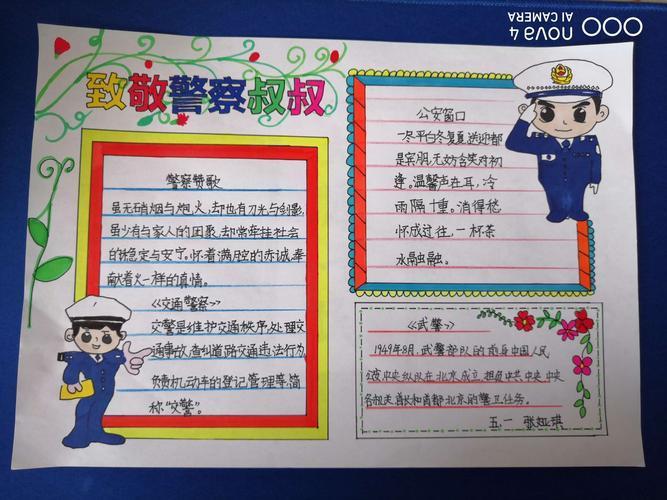 致敬警察叔叔
警察赞歌
虽无硝烟与炮火,却也有刀光与剑影,
虽少有与家人的团聚,却常牵挂社会
的稳定与安宁。怀着满腔的赤诚,奉
献着火一样的真情。
《交通警察》
交警是维护交通秩序,处理交
通事故,查纠道路交通违法行为,
负责机动车的登记管理等,简
称“交警”。
公安窗口
一冬平白冬复夏,送迎都
是宾朋,无妨含笑对初
逢。温馨声在耳,冷
雨隔十重。消得愁
怀成过往,一杯茶
水融融。
《武警》
1949年8月,武警部队的前身中国人民
纵队在北京成立,担负中共中央,中央
各机关,首长和首都北京的警卫任务。
五.一 张娅琪
nova 4
AI CAMERA